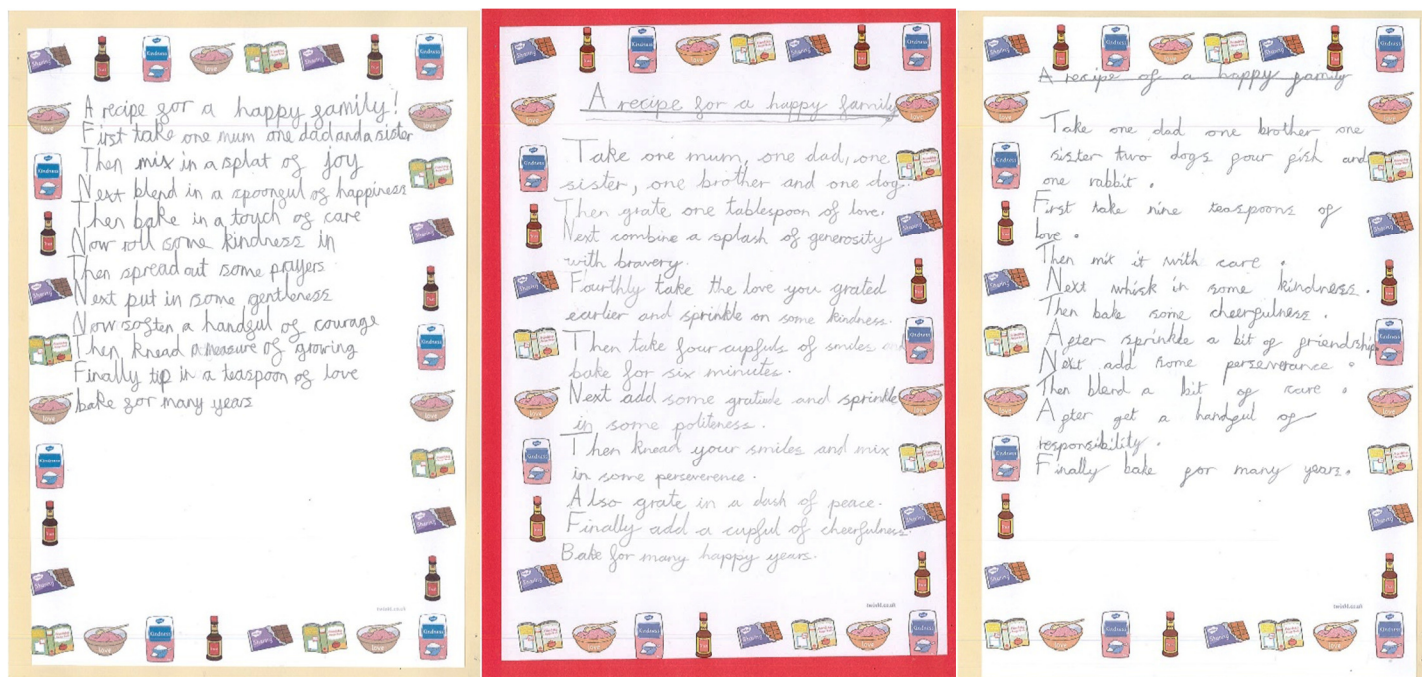 A recipe for a happy family!
First take one mum one dad and a sister
Then mix in a splat of joy
Next blend in a spoonful of happiness
Then bake in a touch of care
Now roll some kindness in
Then spread out some prayers
Next put in some gentleness
Now soften a handful of courage
Then knead a measure of growing
Finally tip in a teaspoon of love
bake for many years
A recipe for a happy family
Take one mum, one dad, one
sister, one brother and one dog.
Then grate one tablespoon of love.
Next combine a splash of generosity
with bravery.
Fourthly take the love you grated
earlier and sprinkle on some kindness.
Then take four cupfuls of smiles and
bake for six minutes.
Next add some gratiude and sprinkle
in some politeness.
Then knead your smiles and mix
in some perseverence.
Also grate in a dash of peace.
Finally add a cupful of cheerfulness.
Bake for many happy years.
A recipe of a happy family
Take one dad one brother one
sister two dogs four fish and
one rabbit.
First take nine teaspoons of
love.
Then mix it with care.
Next whisk in some kindness.
Then bake some cheerfulness.
After sprinkle a bit of friendship
Next add some perseverance.
Then blend a bit of care.
After get a handful of
responsibility.
Finally bake for many years.
Kindness
love
Sharing
twinkl.co.uk